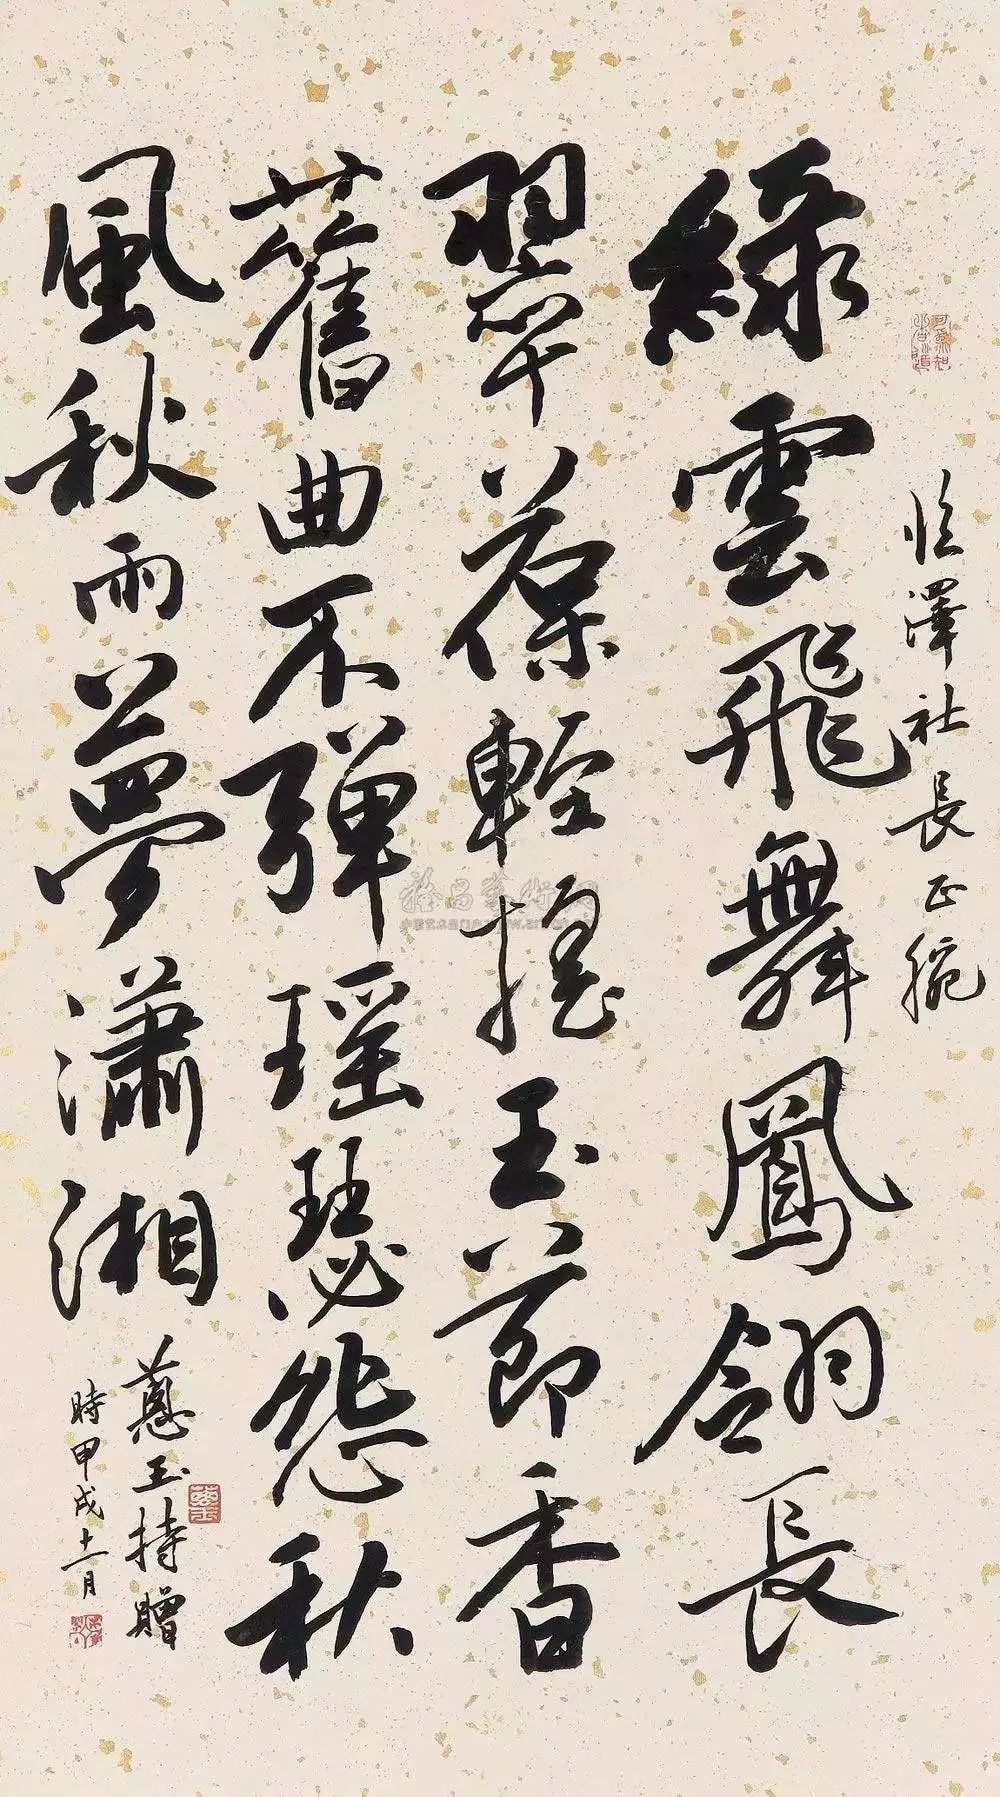 澤社長正腕
綠雲飛舞鳳翎長
翠葆輕搖玉節香
舊曲不彈瑤瑟怨秋
風秋雨夢瀟湘
蕙玉持贈
時甲戌十一月